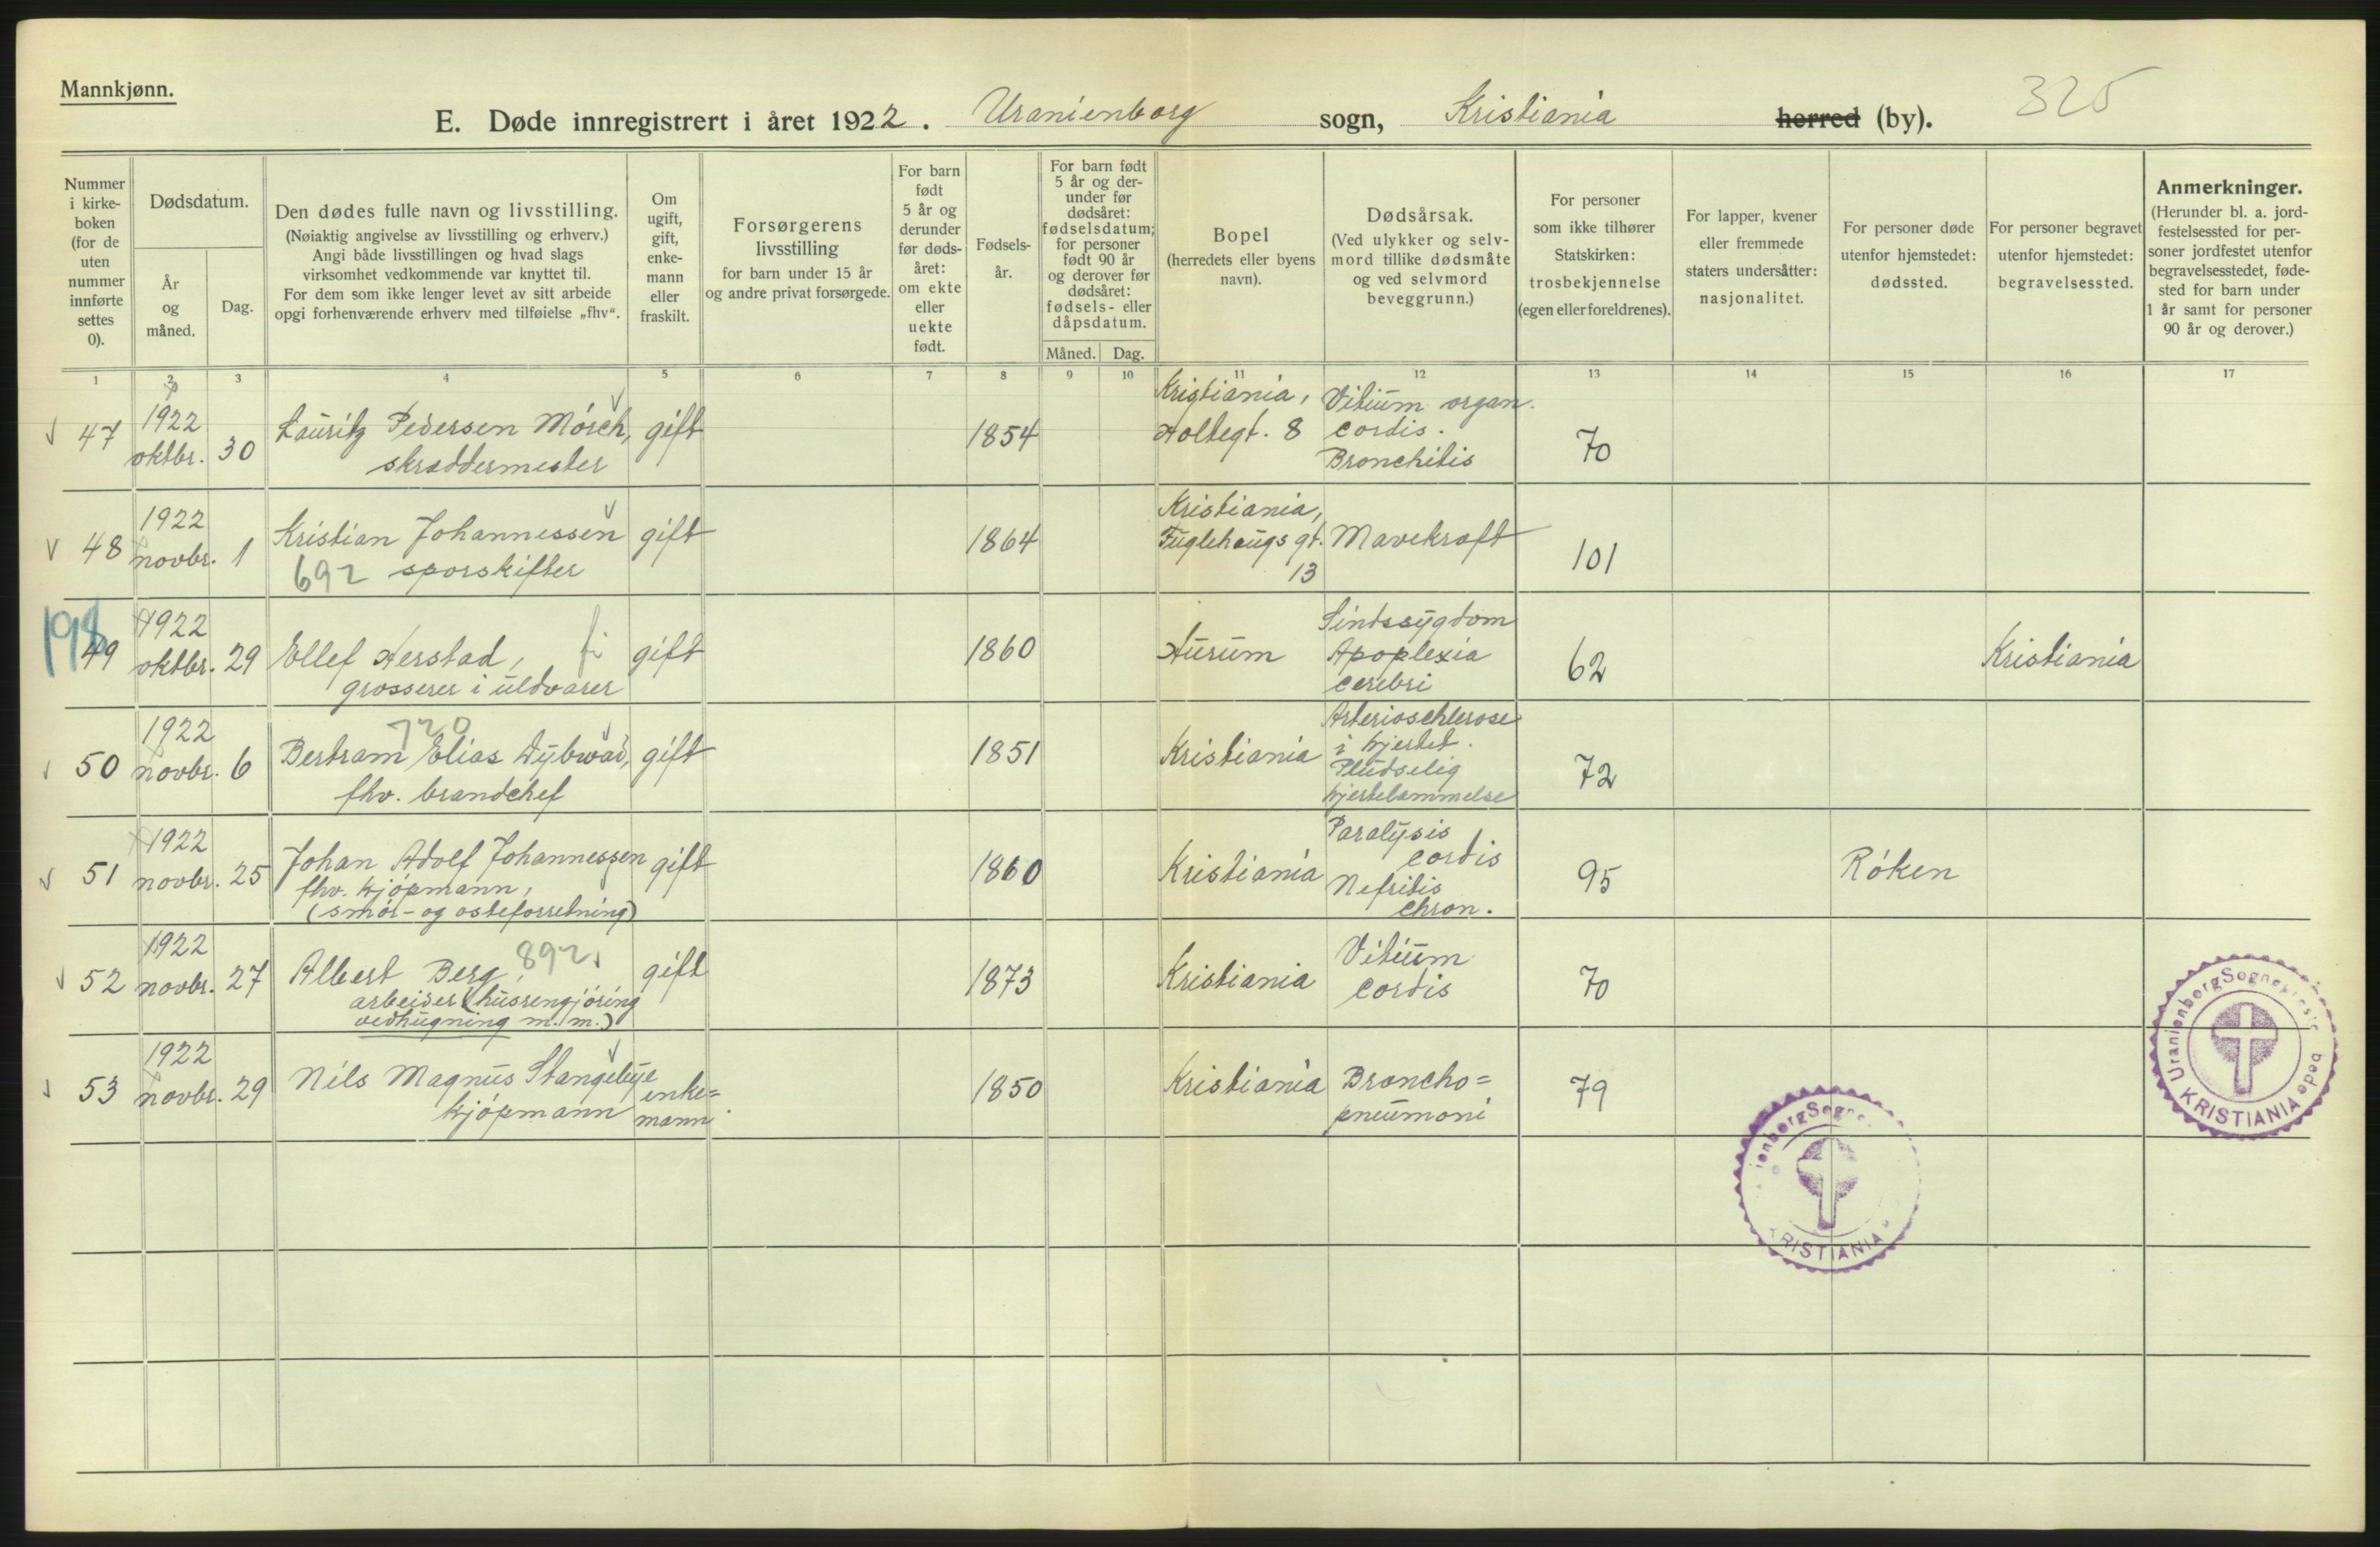 Mannkjønn.
E. Døde innregistrert i året 1922. Uranienborg sogn, Kristiania herred (by). 325
Nummer i kirke-boken (for de uten nummer innførte settes 0).
Dødsdatum.
År og måned.
Dag.
Den dødes fulle navn og livsstilling.
(Nøiaktig angivelse av livsstilling og erhverv.)
Angi både livsstillingen og hvad slags
virksomhet vedkommende var knyttet til.
For dem som ikke lenger levet av sitt arbeide
opgi forhenværende erhverv med tilføielse „fhv“.
Om ugift, gift, enke-mann eller fraskilt.
Forsørgerens
livsstilling
for barn under 15 år
og andre privat forsørgede.
For barn født 5 år og derunder før døds-året: om ekte eller uekte født.
Fødsels-år.
For barn født 5 år og der-under før dødsåret: fødselsdatum; for personer født 90 år og derover før dødsåret: fødsels- eller dåpsdatum.
Måned. Dag.
Bopel
(herredets eller byens
navn).
Dødsårsak.
(Ved ulykker og selv-
mord tillike dødsmåte
og ved selvmord
beveggrunn.)
For personer
som ikke tilhører
Statskirken:
trosbekjennelse
(egen eller foreldrenes).
For lapper, kvener
eller fremmede
staters undersåtter:
nasjonalitet.
For personer døde
utenfor hjemstedet:
dødssted.
For personer begravet
utenfor hjemstedet:
begravelsessted.
Anmerkninger.
(Herunder bl. a. jord-
festelsessted for per-
soner jordfestet utenfor
begravelsesstedet, føde-
sted for barn under
1 år samt for personer
90 år og derover.)
1 2 3 4 5 6 7 8 9 10 11 12 13 14 15 16 17
47 1922 oktbr. 30 Lauritz Pedersen Mörch, skræddermester gift 1854 Kristiania, Holtegt. 8 Vitium organ. cordis. Bronchitis 70
48 1922 novbr. 1 Kristian Johannessen 692 sporskifter gift 1864 Kristiania, Fuglehaugs gt. 13 Mavekræft 101
198
49 1922 oktbr. 29 Ellef Herstad, fi grosserer i uldvarer gift 1860 Hurum Sindssygdom Apoplexia cerebri 62 Kristiania
50 1922 novbr. 6 720 Bertram Elias Dybwad, fhv. brandchef gift 1851 Kristiania Arterioschlerose i hjertet. Pludselig hjertelammelse 72
51 1922 novbr. 25 Johan Adolf Johannessen fhv. kjöpmann, (smör- og osteforretning) gift 1860 Kristiania Paralysis cordis Nefritis chron. 95 Röken
52 1922 novbr. 27 Albert Berg, 892 arbeider (husrengjöring vedhugning m.m.) gift 1873 Kristiania Vitium cordis 70
53 1922 novbr. 29 Nils Magnus Stangebye kjöpmann enke=mann. 1850 Kristiania Broncho=pneumoni 79
Uranienborg Sogneprestembede
KRISTIANIA
ienborg Sogne
RISTIANIA